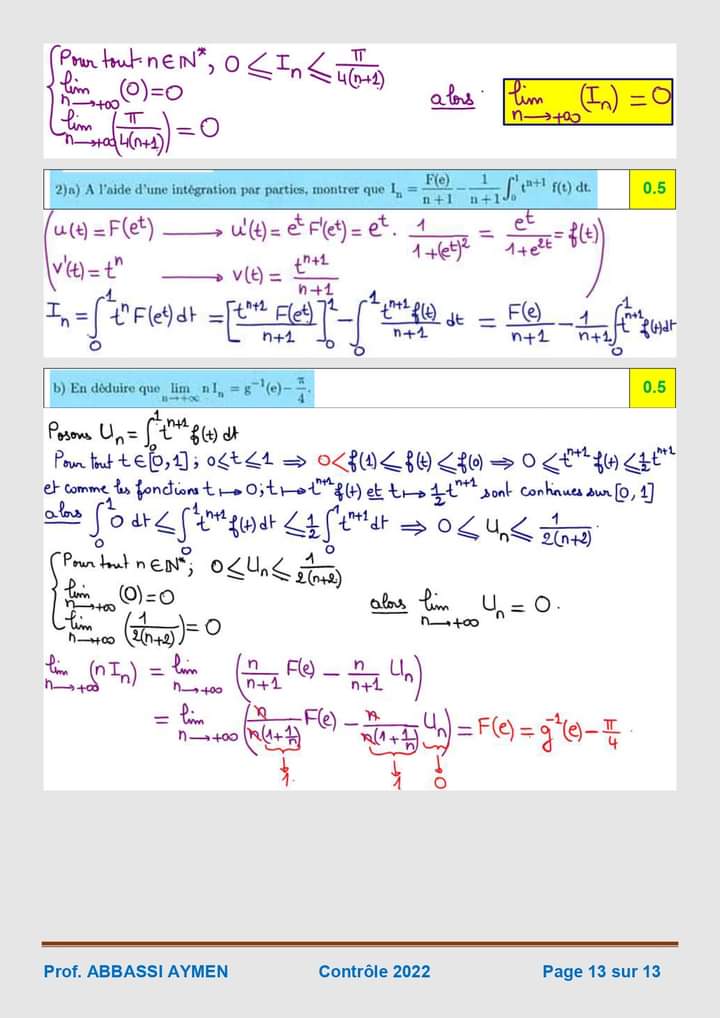 Pour tout n∈ℕ*, 0 ≤ Iₙ ≤ π/4(n+1)
lim n→+∞ (0)=0
lim n→+∞ (π/4(n+1)) = 0
alors lim n→+∞ (Iₙ) = 0
2)a) A l'aide d'une intégration par parties, montrer que Iₙ = F(e)/(n+1) − 1/(n+1) ∫₀¹ tⁿ⁺¹ f(t) dt. 0.5
u(t) = F(eᵗ) ⟶ u'(t) = eᵗ F'(eᵗ) = eᵗ . 1/(1+(eᵗ)²) = eᵗ/(1+e²ᵗ) = f(t)
v'(t) = tⁿ ⟶ v(t) = tⁿ⁺¹/(n+1)
Iₙ = ∫₀¹ tⁿ F(eᵗ) dt = [tⁿ⁺¹ F(eᵗ)/(n+1)]₀¹ − ∫₀¹ tⁿ⁺¹ f(t)/(n+1) dt = F(e)/(n+1) − 1/(n+1) ∫₀¹ tⁿ⁺¹ f(t) dt
b) En déduire que lim n→+∞ n Iₙ = g⁻¹(e) − π/4. 0.5
Posons Uₙ = ∫₀¹ tⁿ⁺¹ f(t) dt
Pour tout t∈[0,1] ; 0≤t≤1 ⟹ 0<f(1)≤f(t)≤f(0) ⟹ 0≤tⁿ⁺¹ f(t)≤½ tⁿ⁺¹
et comme les fonctions t↦0 ; t↦tⁿ⁺¹ f(t) et t↦½ tⁿ⁺¹ sont continues sur [0,1]
alors ∫₀¹ 0 dt ≤ ∫₀¹ tⁿ⁺¹ f(t) dt ≤ ½ ∫₀¹ tⁿ⁺¹ dt ⟹ 0 ≤ Uₙ ≤ 1/2(n+2)
Pour tout n∈ℕ*; 0≤Uₙ≤ 1/2(n+2)
lim n→+∞ (0)=0
lim n→+∞ (1/2(n+2)) = 0
alors lim n→+∞ Uₙ = 0.
lim n→+∞ (n Iₙ) = lim n→+∞ (n/(n+1) F(e) − n/(n+1) Uₙ)
= lim n→+∞ (n/n(1+1/n) F(e) − n/n(1+1/n) Uₙ) = F(e) = g⁻¹(e) − π/4.
1. 1 0
Prof. ABBASSI AYMEN Contrôle 2022 Page 13 sur 13